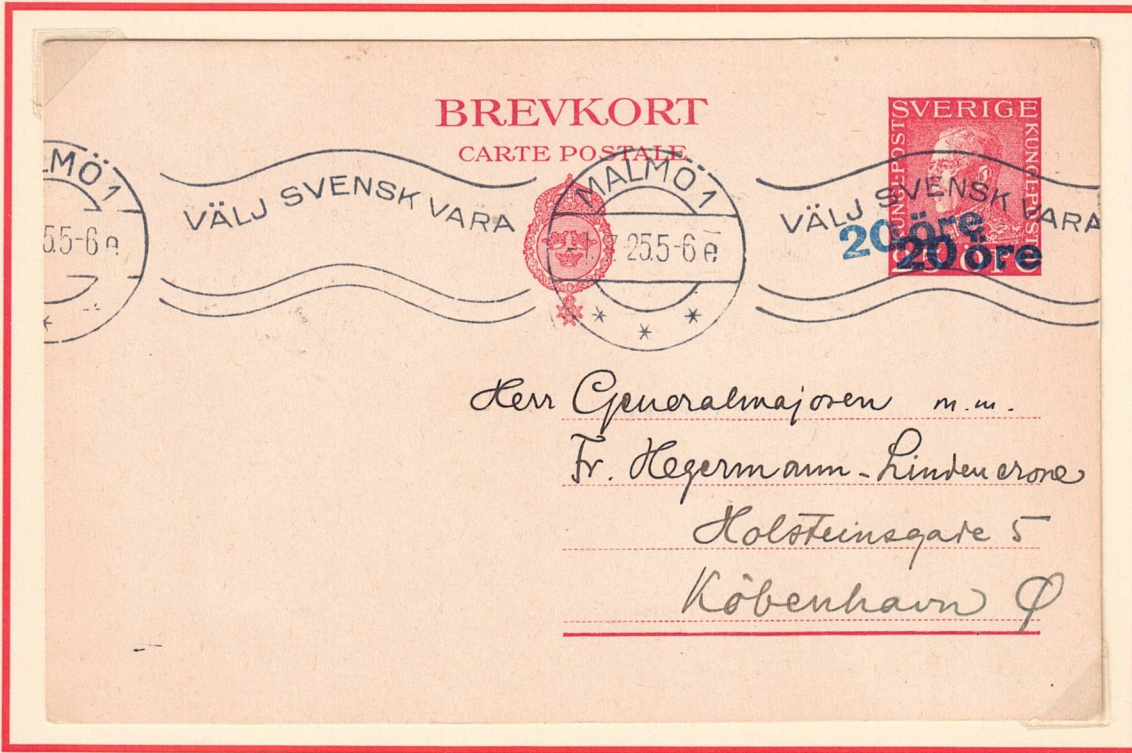 BREVKORT
CARTE POSTALE
SVERIGE
KUNGL·POST
KUNGL·POST
MALMÖ 1
25.5-6 e
* * *
LMÖ 1
5.5-6 e
*
VÄLJ SVENSK VARA
VÄLJ SVENSK VARA
20 öre
20 öre
Herr Generalmajoren m.m.
Fr. Hegermann-Lindencrone
Holsteinsgade 5
København Ø